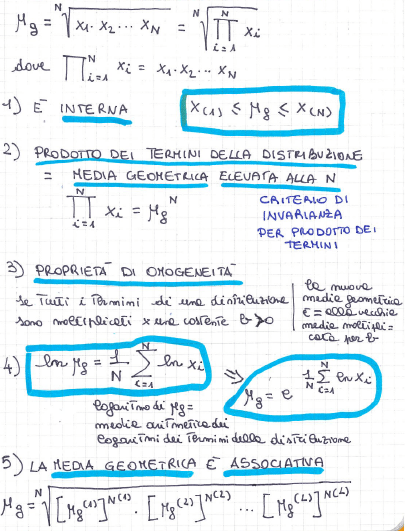 μg = ᴺ√(x₁ · x₂ ... x_N) = ᴺ√(∏_{i=1}^{N} xi)
dove ∏_{i=1}^{N} xi = x₁ · x₂ ... x_N
1) È INTERNA x₍₁₎ ≤ μg ≤ x₍N₎
2) PRODOTTO DEI TERMINI DELLA DISTRIBUZIONE
= MEDIA GEOMETRICA ELEVATA ALLA N
∏_{i=1}^{N} xi = μg^N
CRITERIO DI
INVARIANZA
PER PRODOTTO DEI
TERMINI
3) PROPRIETÀ DI OMOGENEITÀ
se tutti i termini di una distribuzione
sono moltiplicati x una costante b>0
la nuova
media geometrica
è = alla vecchia
media moltipli=
cata per b
4) ln μg = 1/N ∑_{i=1}^{N} ln xi ⇒ μg = e^{1/N ∑_{i=1}^{N} ln xi}
logaritmo di μg =
media aritmetica dei
logaritmi dei termini della distribuzione
5) LA MEDIA GEOMETRICA È ASSOCIATIVA
μg = ᴺ√([μg⁽¹⁾]^{N(1)} · [μg⁽²⁾]^{N(2)} ... [μg⁽ᴸ⁾]^{N(L)})